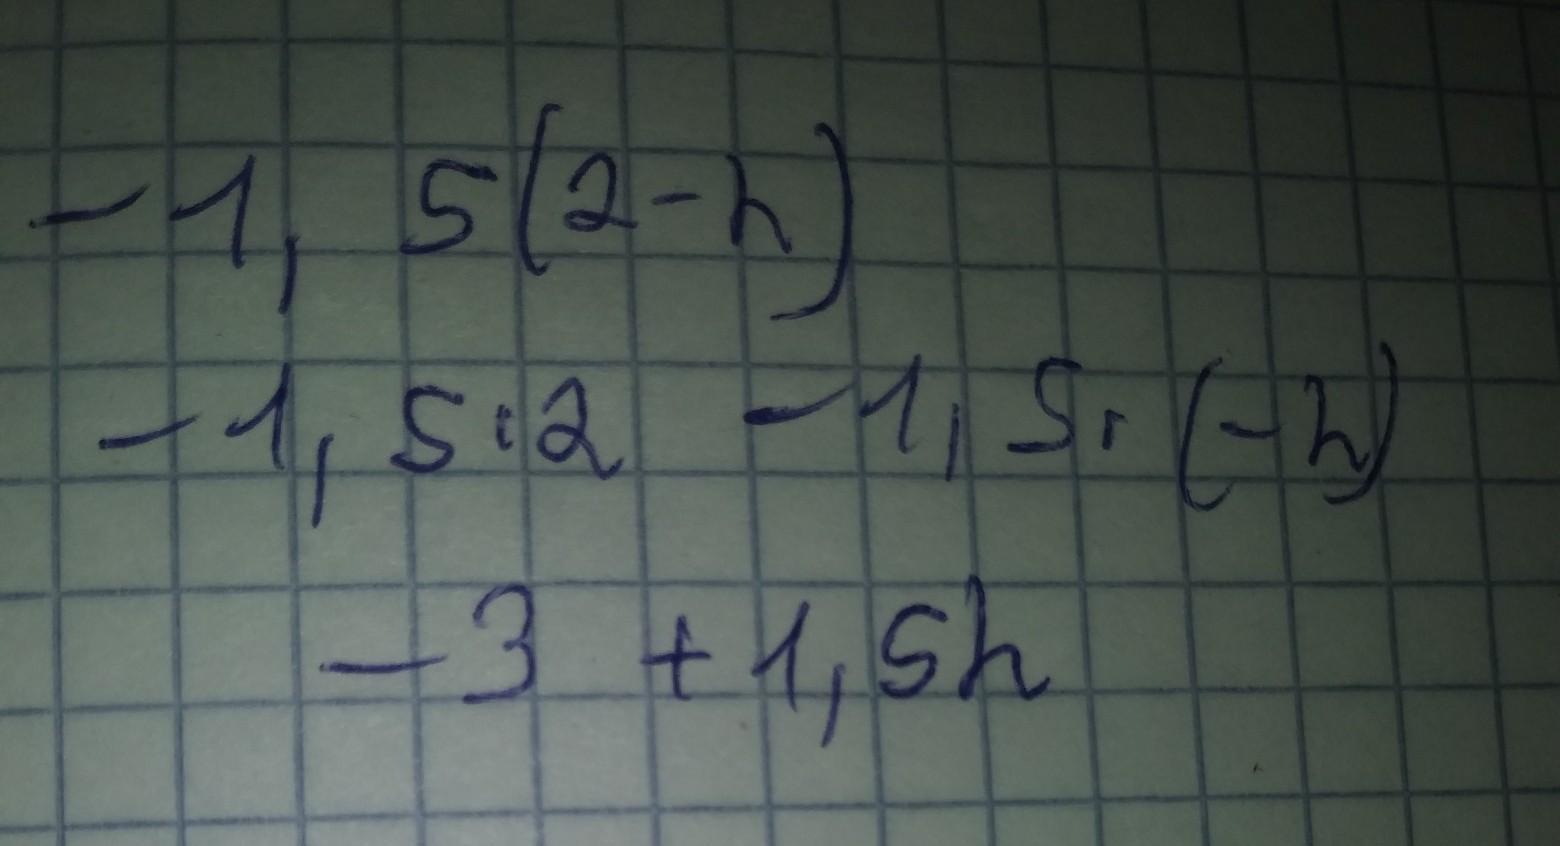 -1,5(2-h)
-1,5·2 -1,5·(-h)
-3 +1,5h